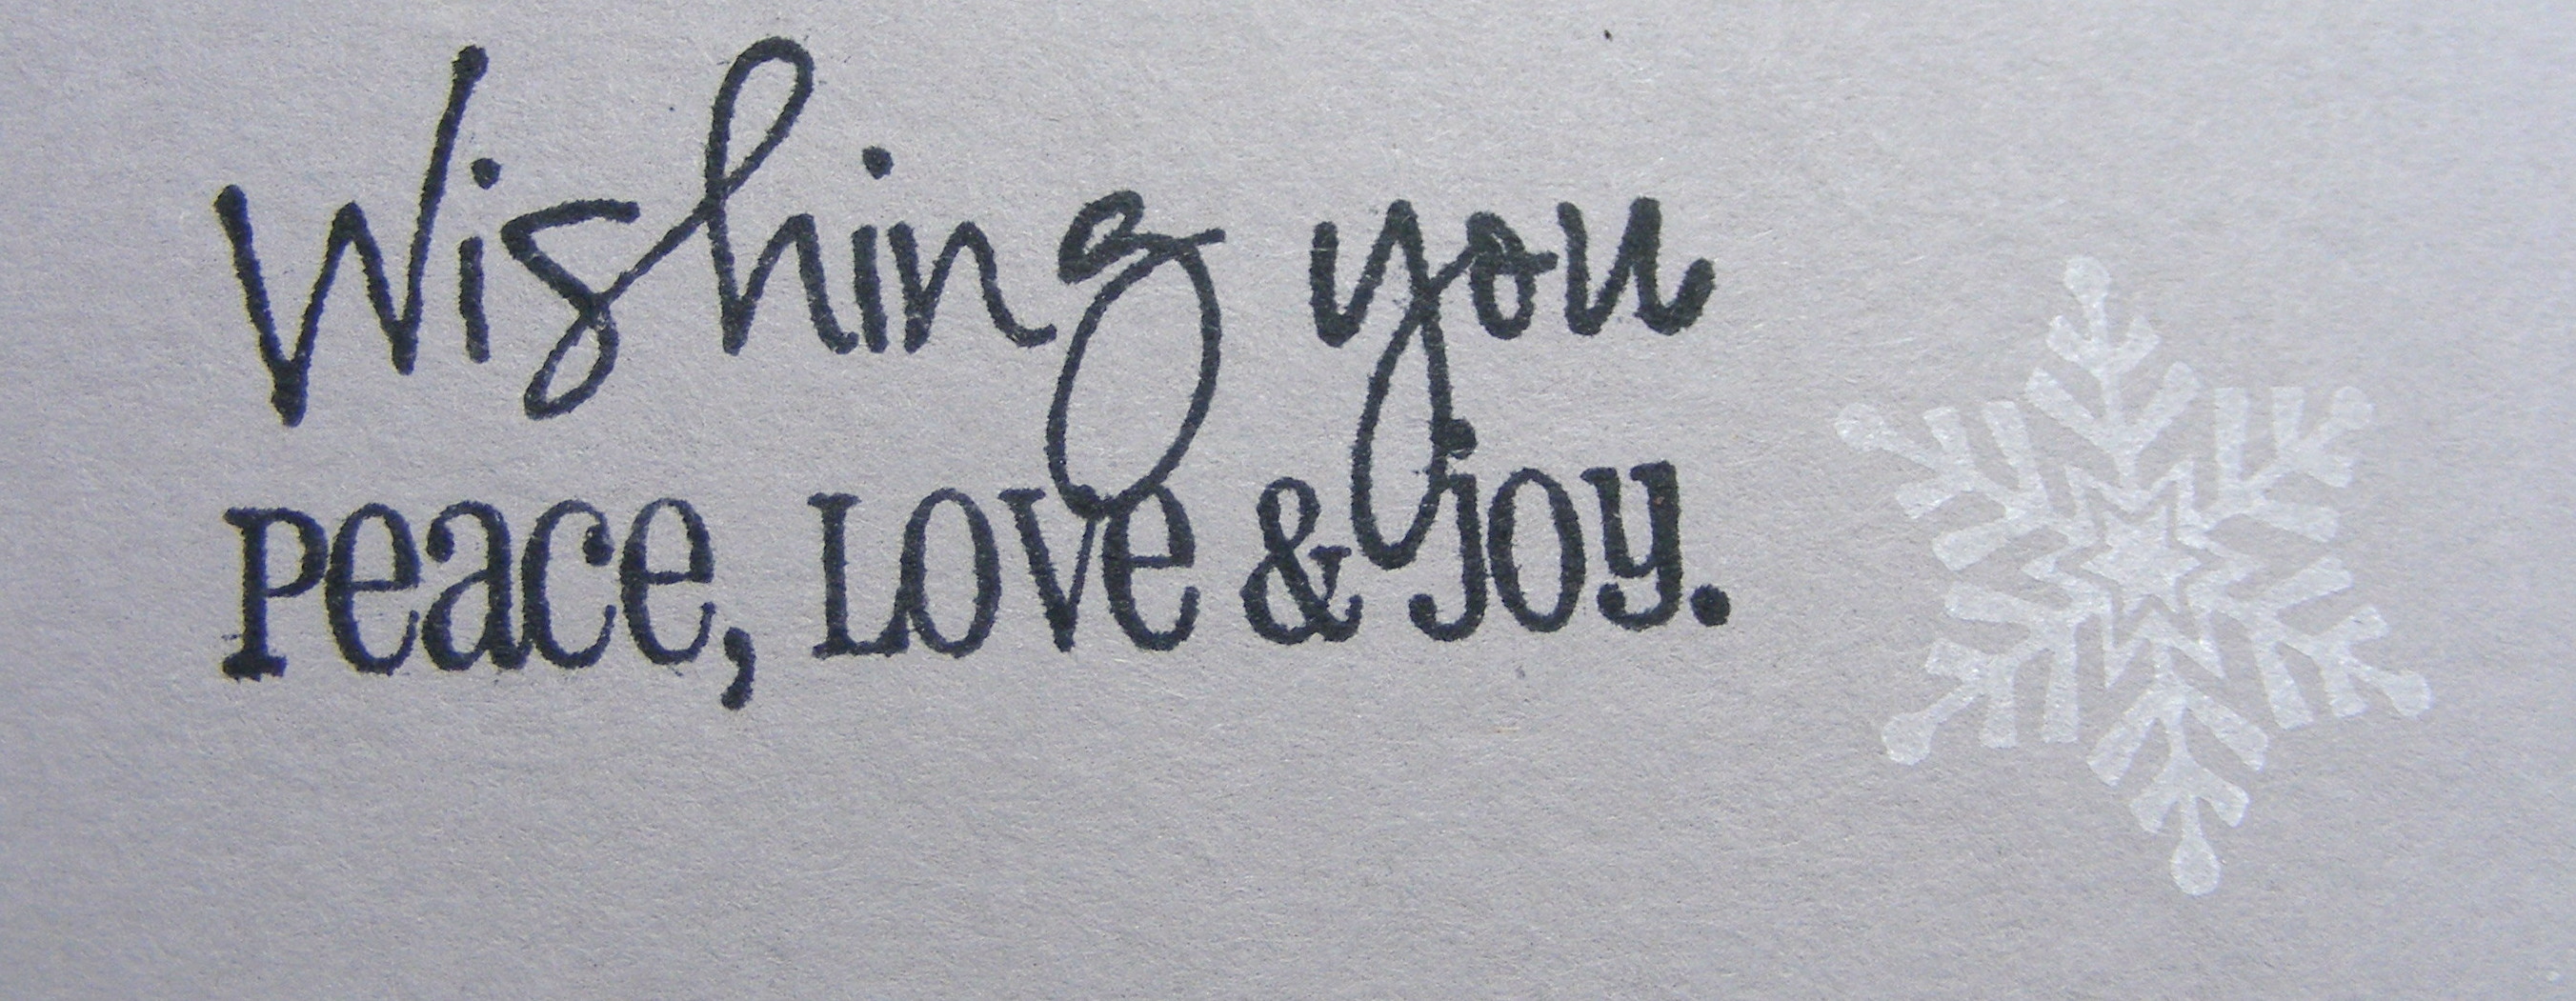 Wishing you
Peace, Love & Joy.